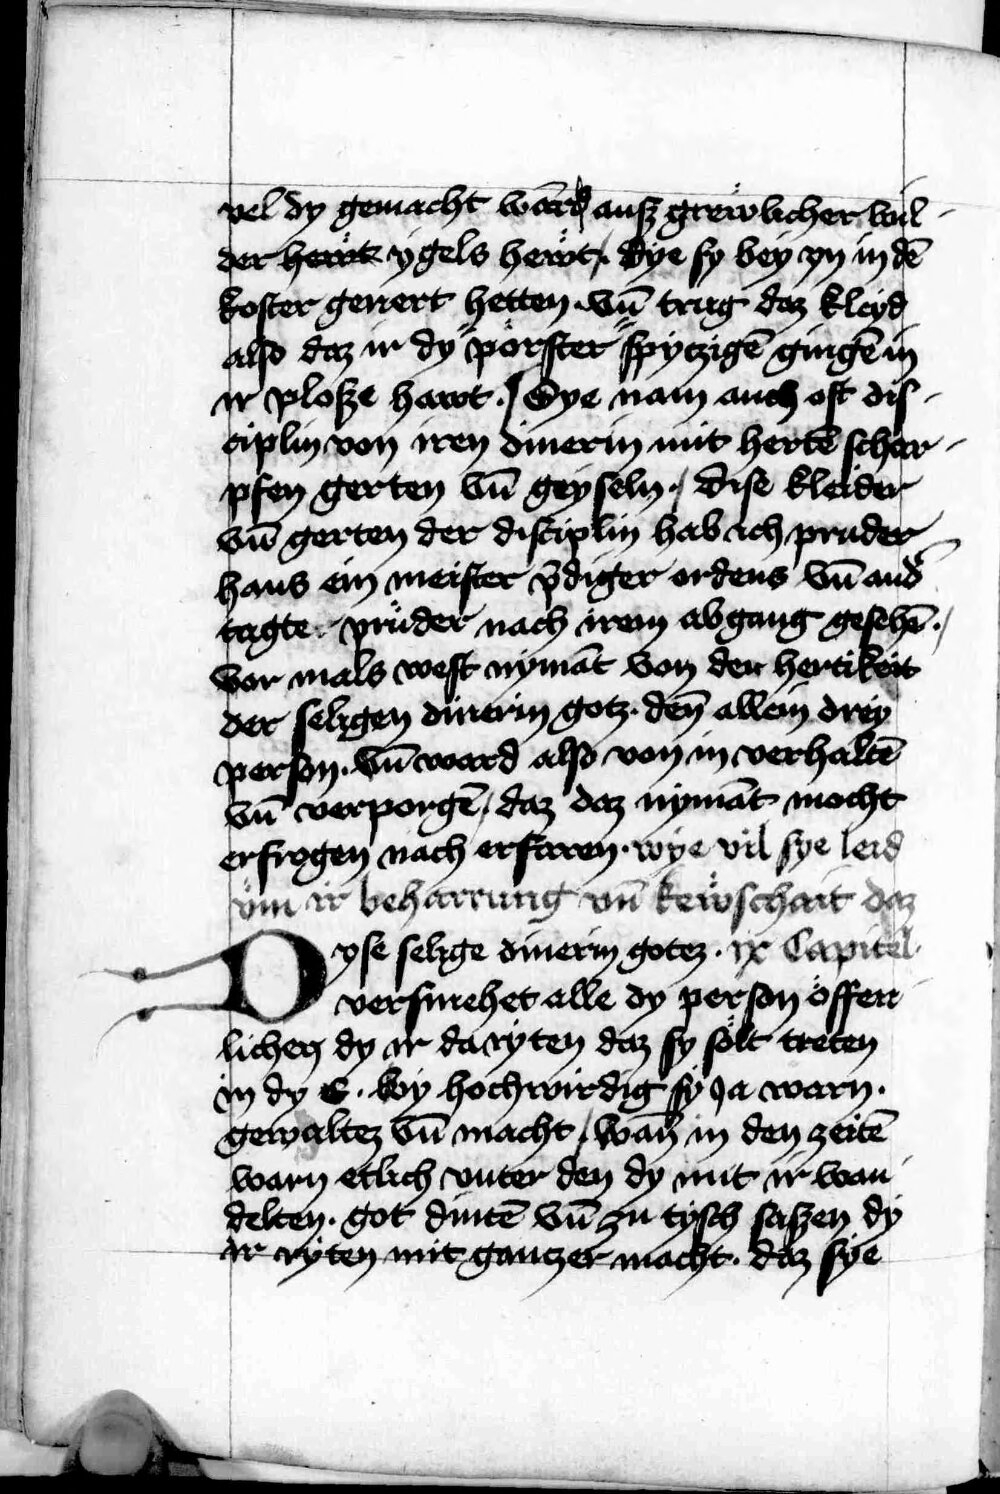 vel dy gemacht wārd ausz grewlicher wil-
der hewt ygels hewt. dye sy bey yn in dē
koster genert hetten. vn̄ trug daz kleyd
also daz ir dy porster spyczigē gingē in
ir plosze hawt. Sye nam auch oft dis-
ciplin von iren dinerin mit hertē schar-
pfen gerten vn̄ geyseln. dise kleider
vn̄ gerten der disciplin hab ich pruder
hans ein meister p̄diger ordens vn̄ and̄
prüder nach irem abgang gesehē.
vor mals west nymāt von der hertikeit
der seligen dinerin gotz. den̄ allein drey
person. vn̄ ward also von in verhaltē
vn̄ verporgē, daz daz nymāt mocht
erfrogen nach erfaren. wye vil sye leid
vm ir beharrung vn̄ kewschait daz
Dyse selige dinerin gotez. ix Capitel.
versmehet alle dy person öffen
lichen dy ir da ryten daz sy sölt treten
in dy E. wy hochwirdig sy Ja warn.
gewaltez vn̄ macht, wan̄ in den zeitē
warn etlich vnter den dy mit ir wan
delten. got dintē vn̄ zu tysch saszen dy
ir ryten mit gantzer macht. daz sye